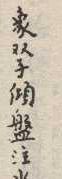 象双子傾盤注水